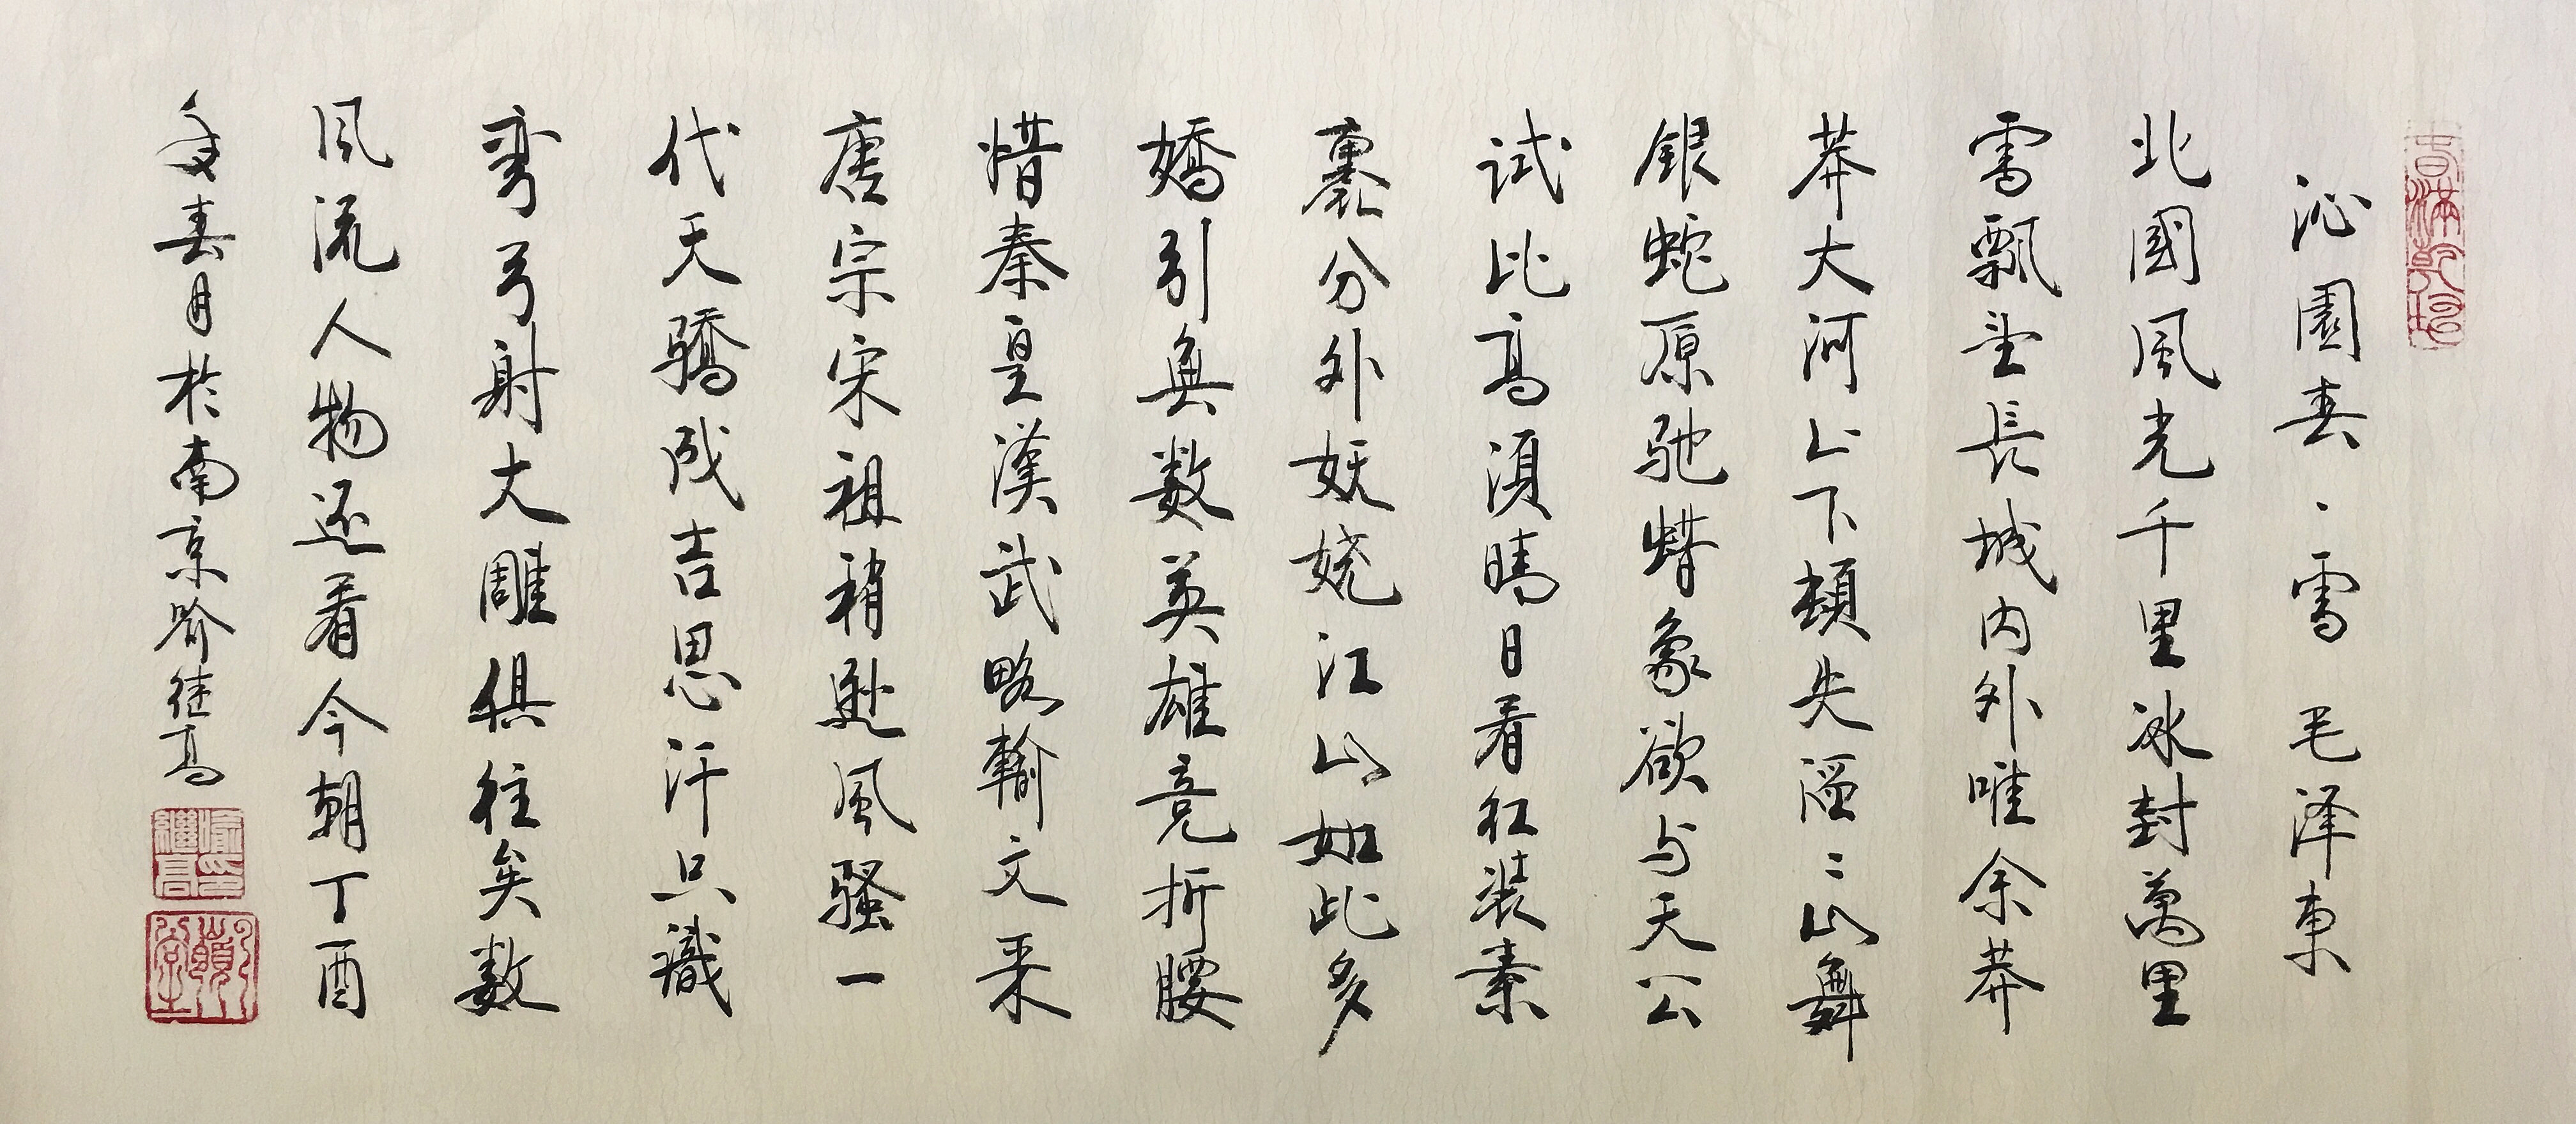 沁園春·雪 毛泽東
北國風光千里冰封萬里
雪飄望長城内外唯余莽
莽大河上下頓失滔〻山舞
銀蛇原驰蜡象欲与天公
试比高須晴日看红装素
裹分外妖娆江山如此多
嬌引無数英雄竞折腰
惜秦皇漢武略輸文采
唐宗宋祖稍逊風骚一
代天骄成吉思汗只識
弯弓射大雕俱往矣数
风流人物还看今朝丁酉
年春月於南京喻继高
喻印繼高